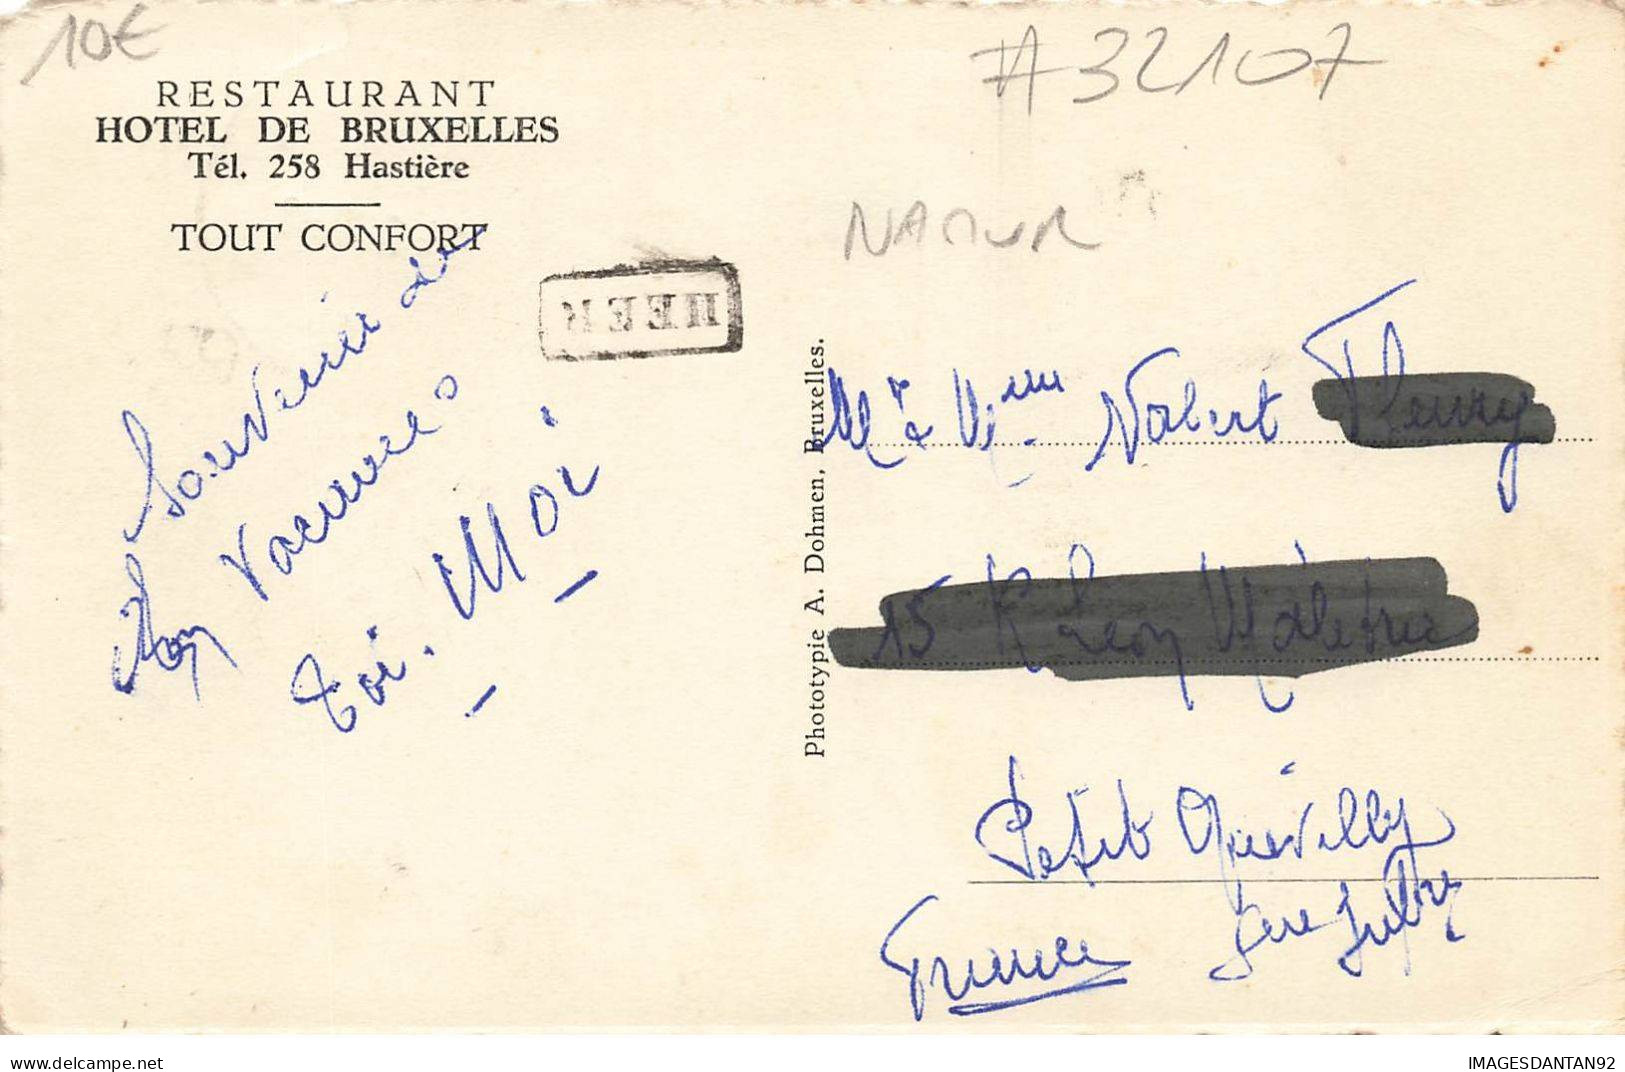 10€
#32107
RESTAURANT
HOTEL DE BRUXELLES
Tél. 258 Hastière
TOUT CONFORT
NAMUR
HEER
Souvenir de
Vacances
Toi. Moi
Phototypie A. Dohmen, Bruxelles.
Mr & Mme Norbert
Petit Quevilly
Seine Infre
France
delcampe.net
IMAGESDANTAN92